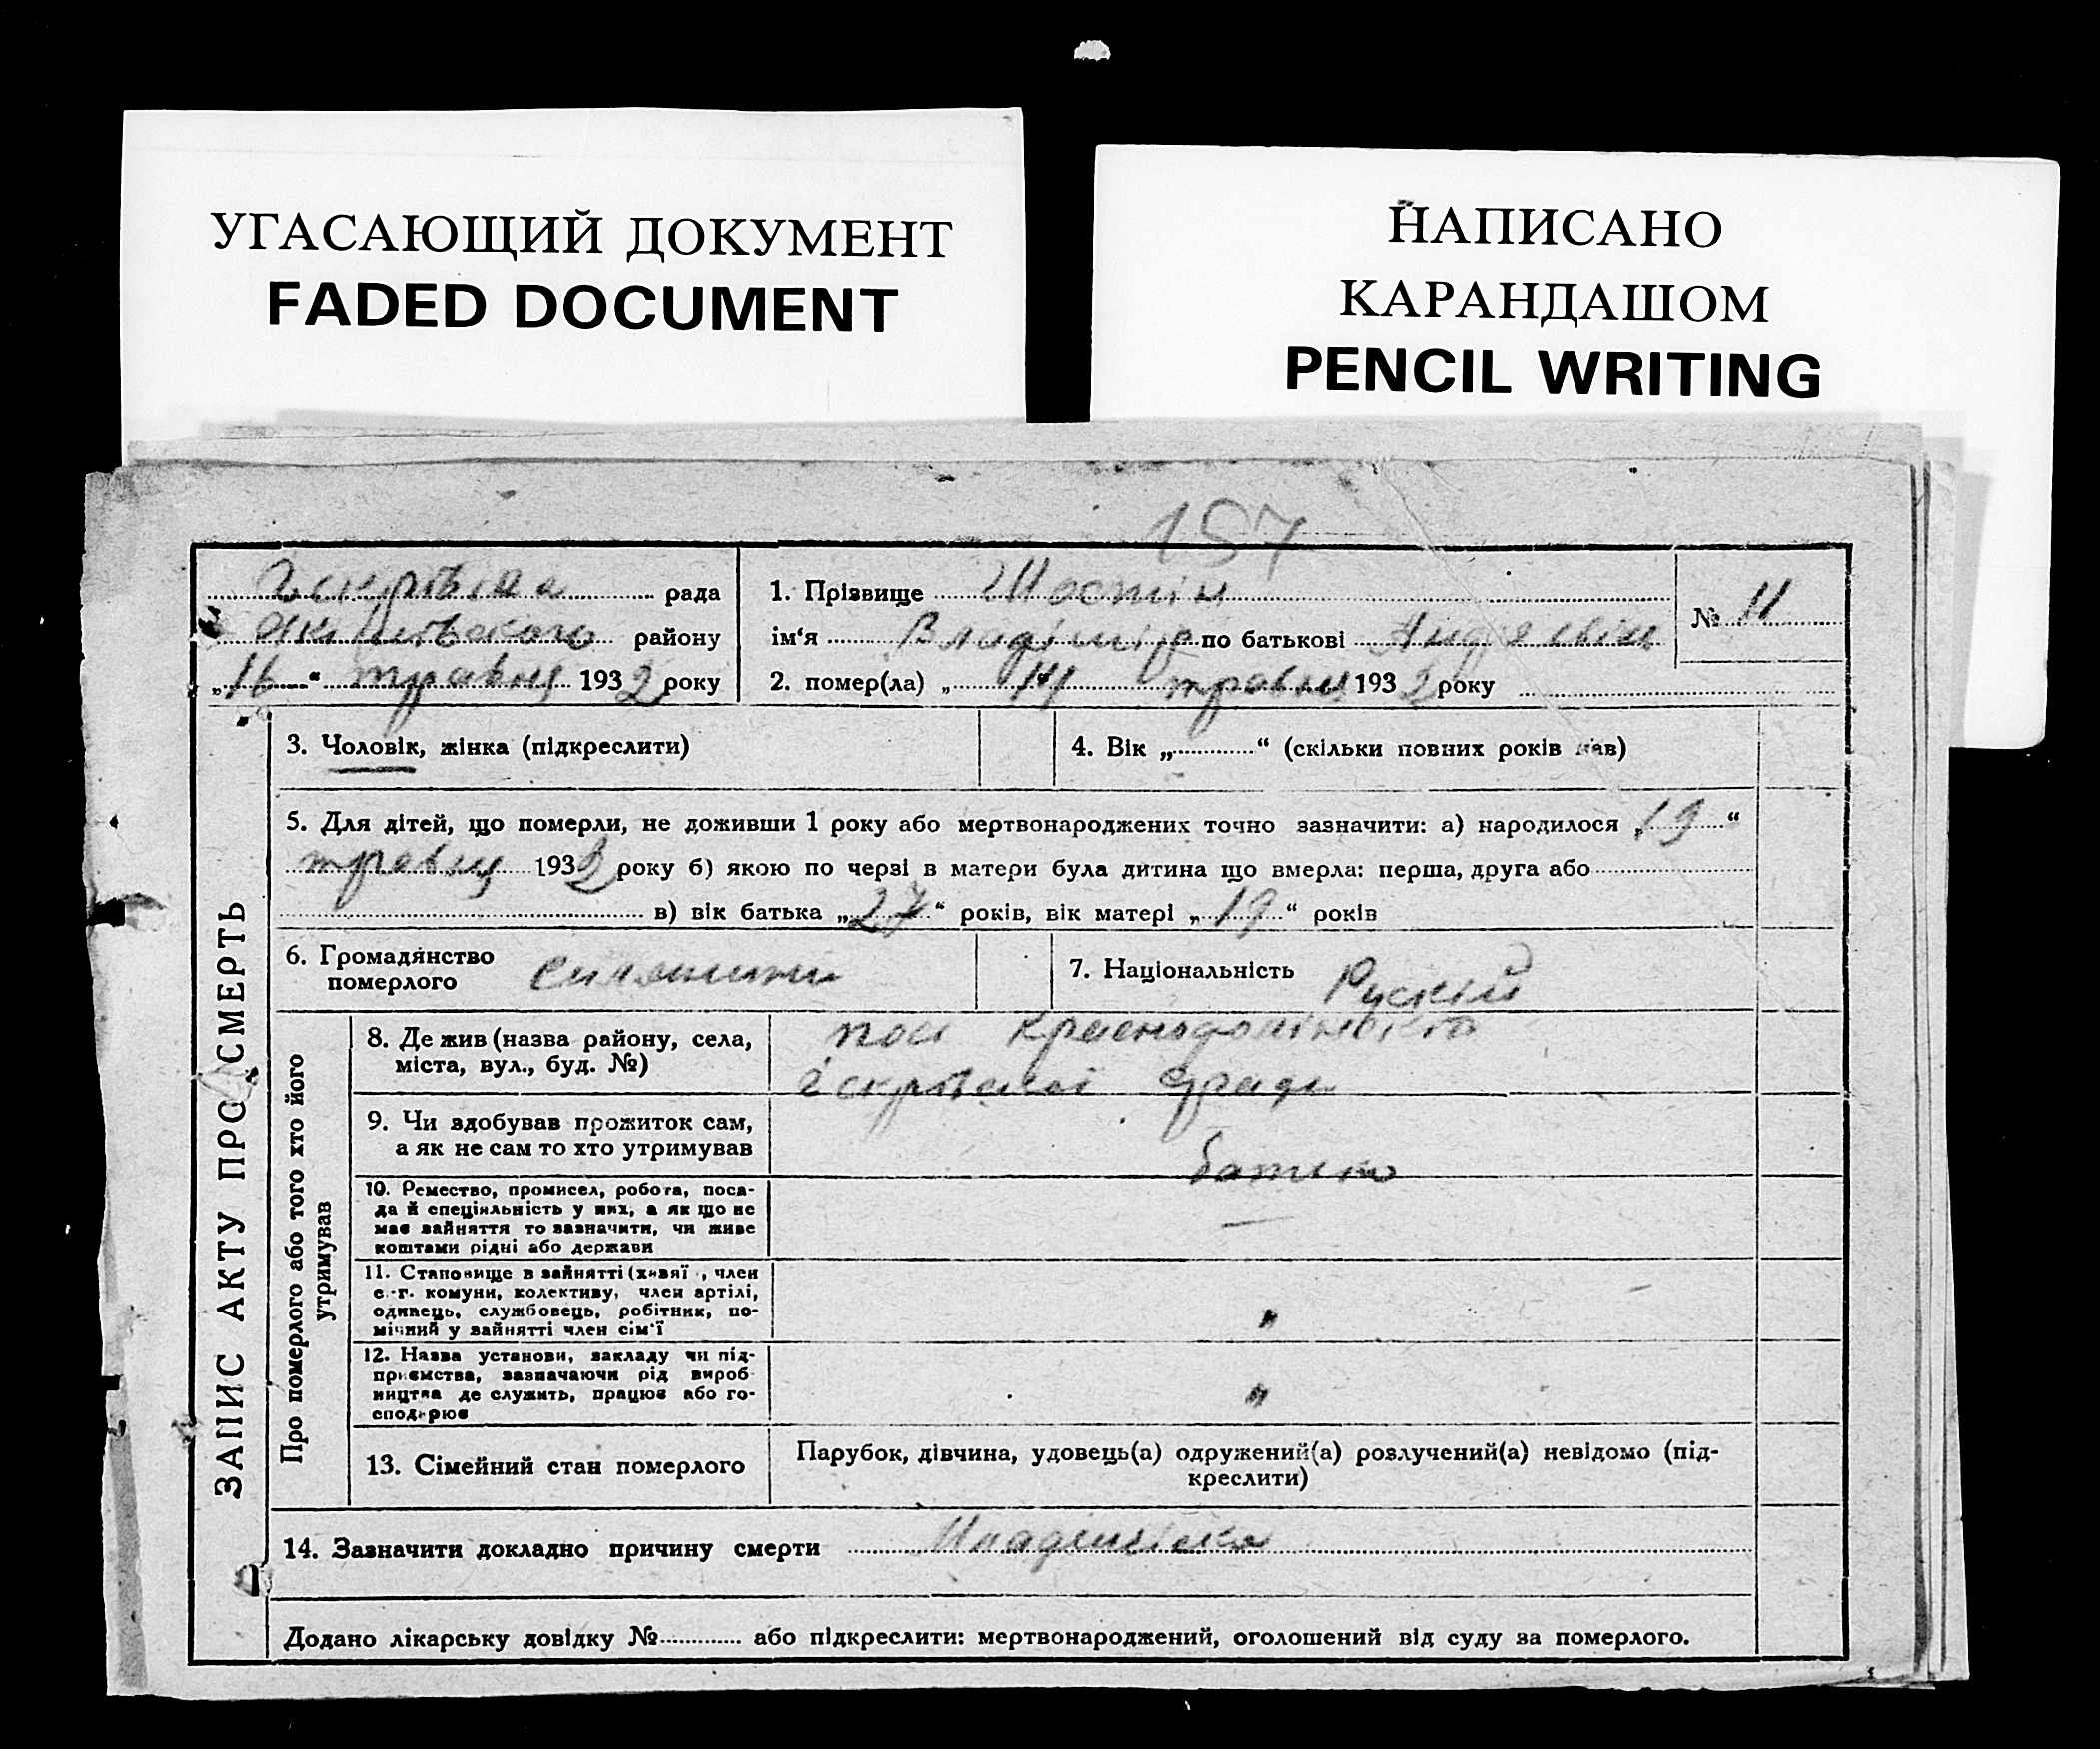 УГАСАЮЩИЙ ДОКУМЕНТ
FADED DOCUMENT
НАПИСАНО
КАРАНДАШОМ
PENCIL WRITING
157
рада
району
„16“ травня 1932 року
1. Прізвище Шостін
ім‘я Владімір по батькові
2. помер(ла) „14 травня 1932 року
№ 11
ЗАПИС АКТУ ПРО СМЕРТЬ
3. Чоловік, жінка (підкреслити)
4. Вік „ “ (скільки повних років мав)
5. Для дітей, що померли, не доживши 1 року або мертвонароджених точно зазначити: а) народилося „19“
травня 193 року б) якою по черзі в матери була дитина що вмерла: перша, друга або
в) вік батька „27“ років, вік матері „19“ років
6. Громадянство
померлого
7. Національність Рускій
Про померлого або того хто його
утримував
8. Де жив (назва району, села,
міста, вул., буд. №)
пос
9. Чи здобував прожиток сам,
а як не сам то хто утримував
батько
10. Ремество, промисел, робота, поса-
да й спеціяльність у них, а як що не
має зайняття то зазначити, чи живе
коштами рідні або держави
—
11. Становище в зайнятті (хазяї , член
с.-г. комуни, колективу, член артілі,
одинець, службовець, робітник, по-
мічний у зайнятті член сім‘ї
"
12. Назва установи, закладу чи під-
приємства, зазначаючи рід вироб
ництва де служить, працює або го-
сподарює
"
13. Сімейний стан померлого
Парубок, дівчина, удовець(а) одружений(а) розлучений(а) невідомо (під-
креслити)
14. Зазначити докладно причину смерти
Додано лікарську довідку № або підкреслити: мертвонароджений, оголошений від суду за померлого.